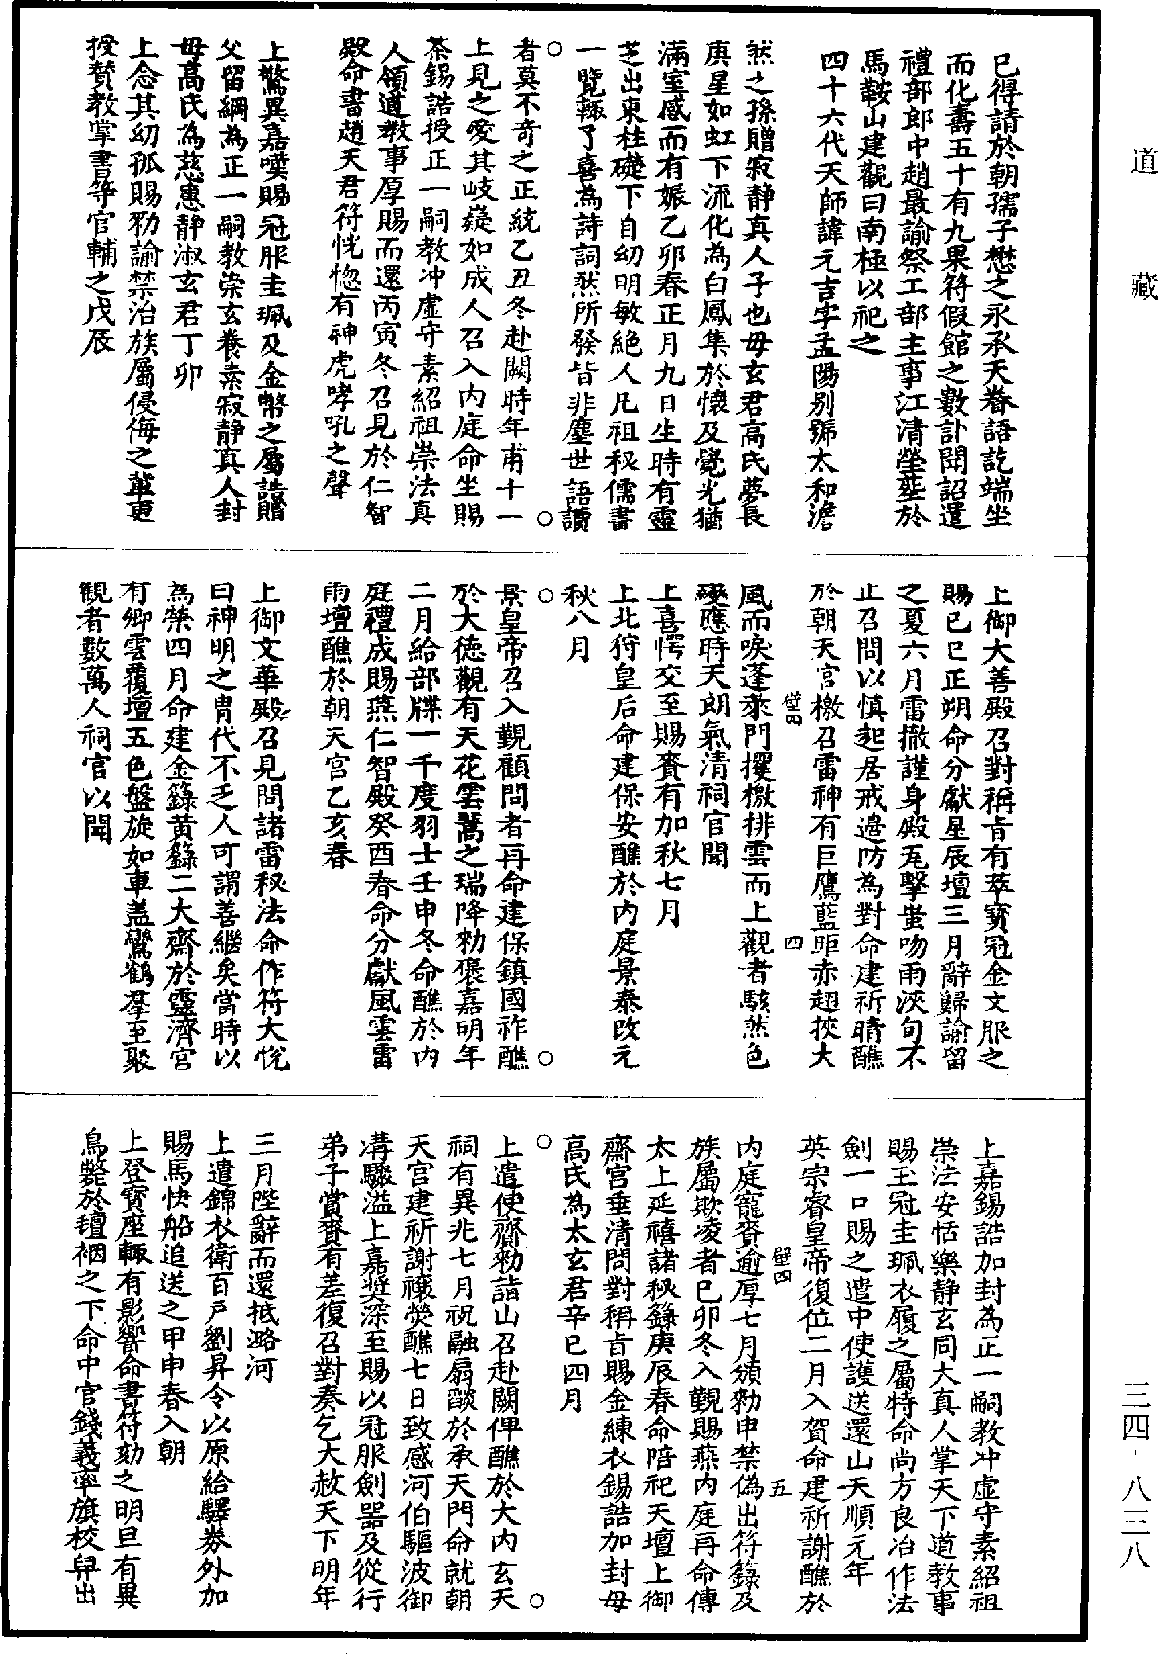 道藏
已得請於朝孺子懋之永承天眷語訖端坐
而化壽五十有九果符假館之數訃聞詔遣
禮部郎中趙最諭祭工部主事江清塋塟於
馬鞍山建觀曰南極以祀之
四十六代天師諱元吉字孟陽別號太和澹
然之孫贈寂靜真人子也母玄君高氏夢長
庚星如虹下流化為白鳳集於懷及覺光猶
滿室感而有娠乙卯春正月九日生時有靈
芝出東柱礎下自幼明敏絕人凡祖秘儒書
一覽輒了喜為詩詞然所發皆非塵世語讀
者莫不奇之正統乙丑冬赴闕時年甫十一
上見之愛其岐嶷如成人召入內庭命坐賜
茶錫誥授正一嗣教冲虛守素紹祖崇法真
人領道教事厚賜而還丙寅冬召見於仁智
殿命書趙天君符恍惚有神虎哮吼之聲
上驚異嘉嘆賜冠服圭珮及金幣之屬誥贈
父留綱為正一嗣教崇玄養素寂靜真人封
母高氏為慈惠靜淑玄君丁卯
上念其幼孤賜勑諭禁治族屬侵侮之輩更
授贊教掌書等官輔之戊辰
上御大善殿召對稱旨有萃寶冠金文服之
賜己巳正朔命分獻星辰壇三月辭歸諭留
之夏六月雷撤謹身殿瓦擊蚩吻雨浹旬不
止召問以慎起居戒邊防為對命建祈晴醮
於朝天宮檄召雷神有巨鷹藍距赤翅挾大
壁四
四
風而唳蓬萊門攫檄排雲而上觀者駭然色
變應時天朗氣清祠官聞
上喜愕交至賜賚有加秋七月
上北狩皇后命建保安醮於內庭景泰改元
秋八月
景皇帝召入覲顧問者再命建保鎮國祚醮
於大德觀有天花雲鶴之瑞降勑褒嘉明年
二月給部牒一千度羽士壬申冬命醮於內
庭禮成賜燕仁智殿癸酉春命分獻風雲雷
雨壇醮於朝天宮乙亥春
上御文華殿召見問諸雷秘法命作符大悅
曰神明之胄代不乏人可謂善繼矣當時以
為榮四月命建金籙黃籙二大齋於靈濟宮
有卿雲覆壇五色盤旋如車蓋鸞鶴羣至聚
觀者數萬人祠官以聞
上嘉錫誥加封為正一嗣教冲虛守素紹祖
崇法安恬樂靜玄同大真人掌天下道教事
賜玉冠圭珮衣履之屬特命尚方良冶作法
劍一口賜之遣中使護送還山天順元年
英宗睿皇帝復位二月入賀命建祈謝醮於
壁四
五
內庭寵賚逾厚七月頒勑申禁偽出符籙及
族屬欺凌者己卯冬入覲賜燕內庭再命傳
太上延禧諸秘籙庚辰春命陪祀天壇上御
齋宮垂清問對稱旨賜金練衣錫誥加封母
高氏為太玄君辛巳四月
上遣使齎勑詣山召赴闕俾醮於大內玄天
祠有異兆七月祝融扇燄於承天門命就朝
天宮建祈謝禳熒醮七日致感河伯驅波御
溝驟溢上嘉奬深至賜以冠服劍器及從行
弟子賞賚有差復召對奏乞大赦天下明年
三月陛辭而還抵潞河
上遣錦衣衛百戶劉昇令以原給驛券外加
賜馬快船追送之甲申春入朝
上登寶座輒有影響命書符劾之明旦有異
鳥斃於壇裀之下命中官錢義寧旗校舁出
三四-八三八